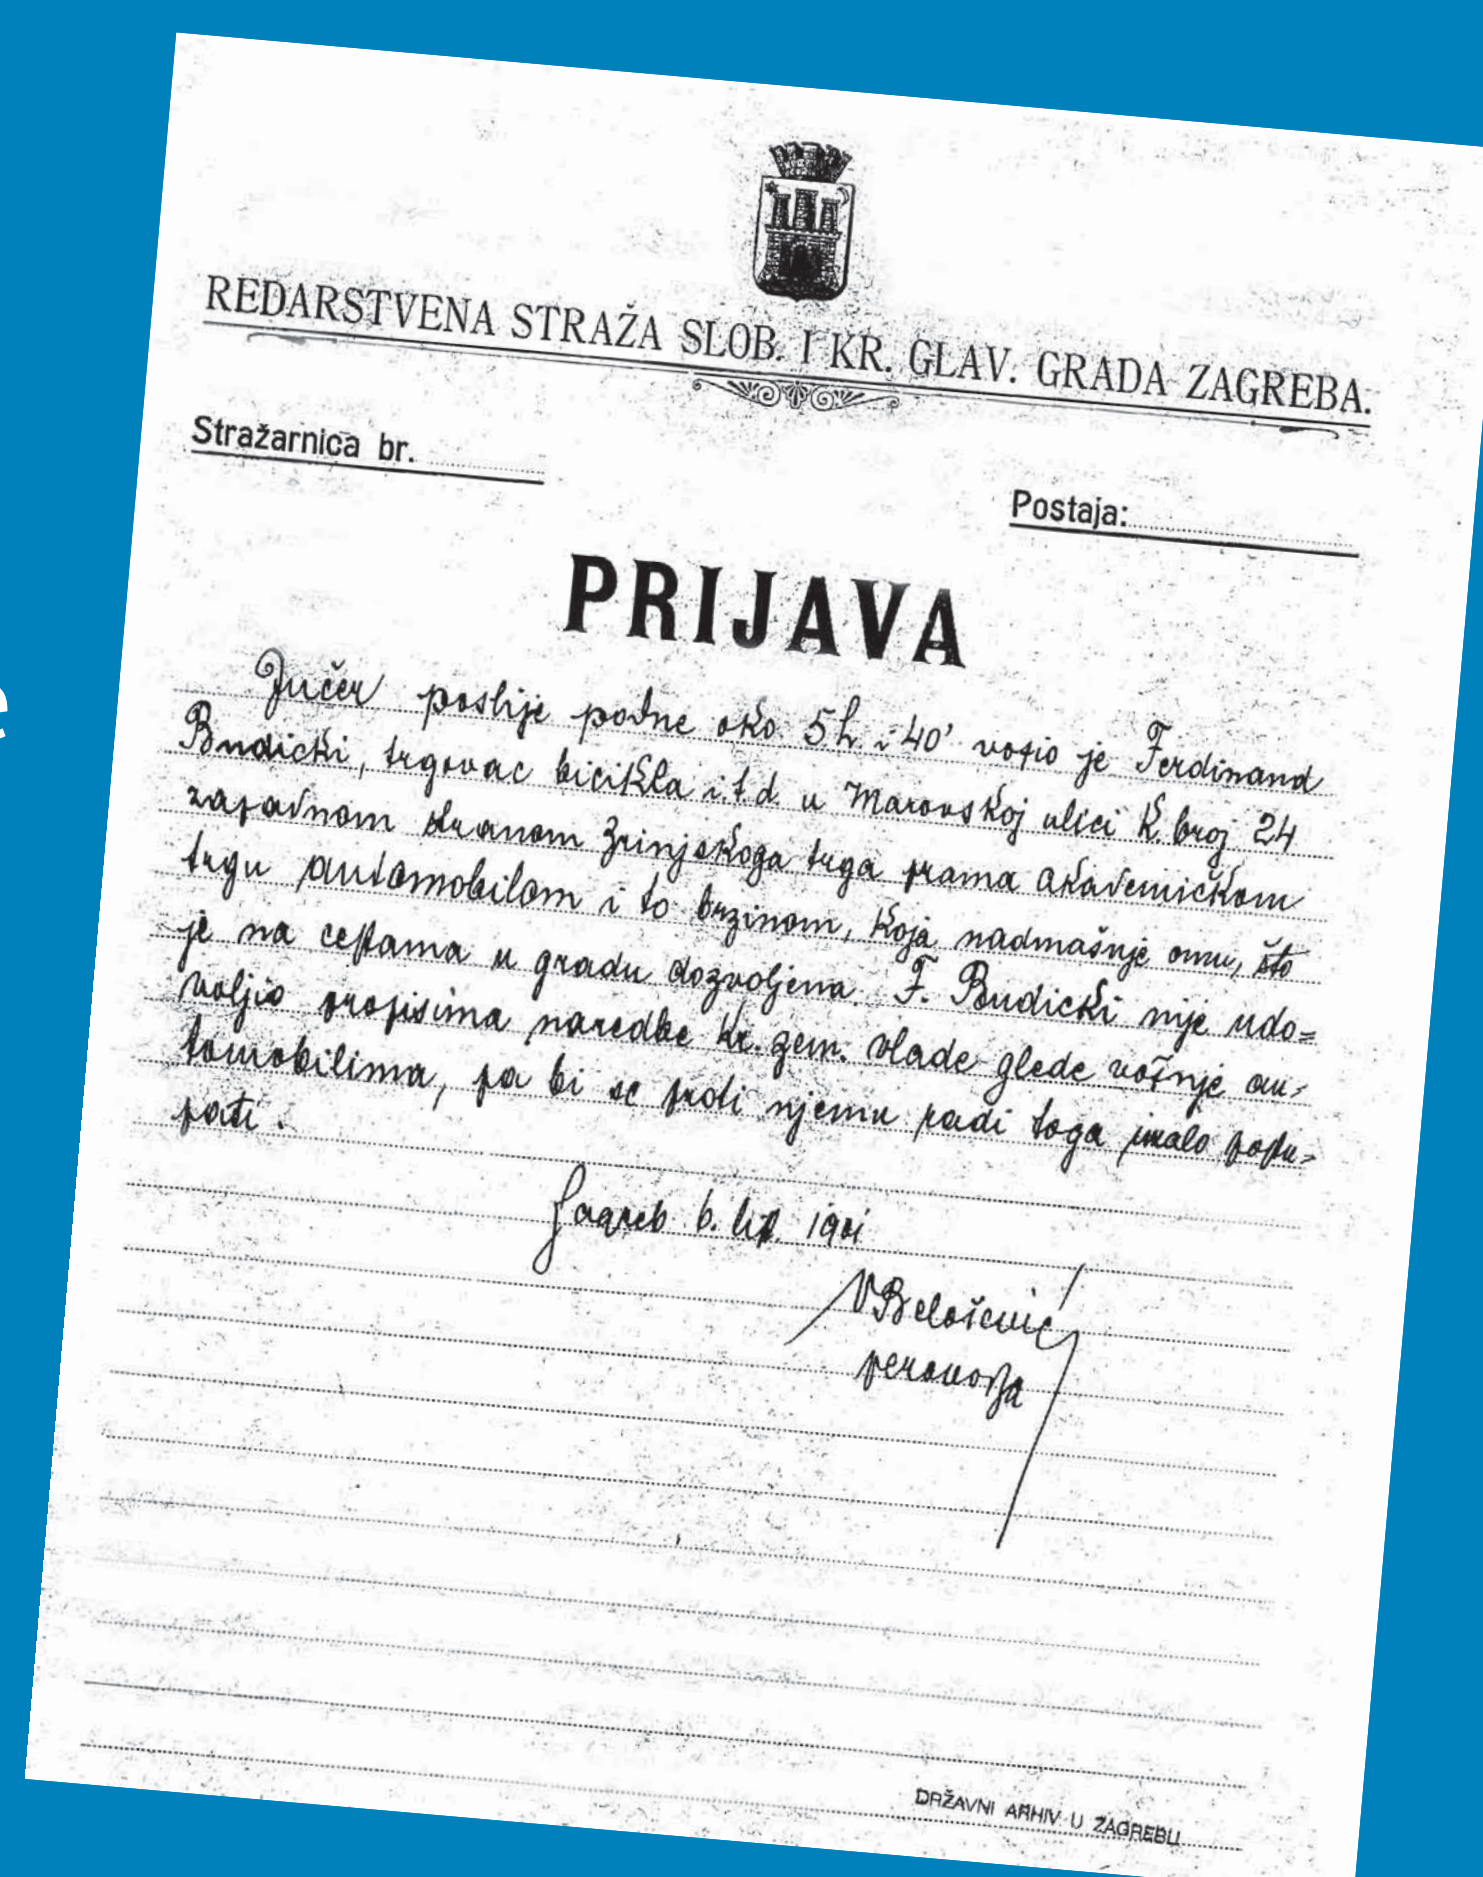 REDARSTVENA STRAŽA SLOB. I KR. GLAV. GRADA ZAGREBA.
Stražarnica br.
Postaja:
PRIJAVA
Jučer poslije podne oko 5h i 40' vozio je Ferdinand
Budicki, trgovac bicikla i.t.d. u Marovskoj ulici k. broj 24
zapadnom stranom Zrinjskoga trga prama akademičkom
trgu automobilom i to brzinom, koja nadmašuje onu, što
je na cestama u gradu dozvoljena. F. Budicki nije udo=
voljio propisima naredbe kr. zem. vlade glede vožnje au=
tomobilima, pa bi se proti njemu radi toga imalo postu=
pati.
Zagreb 6. lip. 1901
V Belošević
perovođa
DRŽAVNI ARHIV U ZAGREBU
e